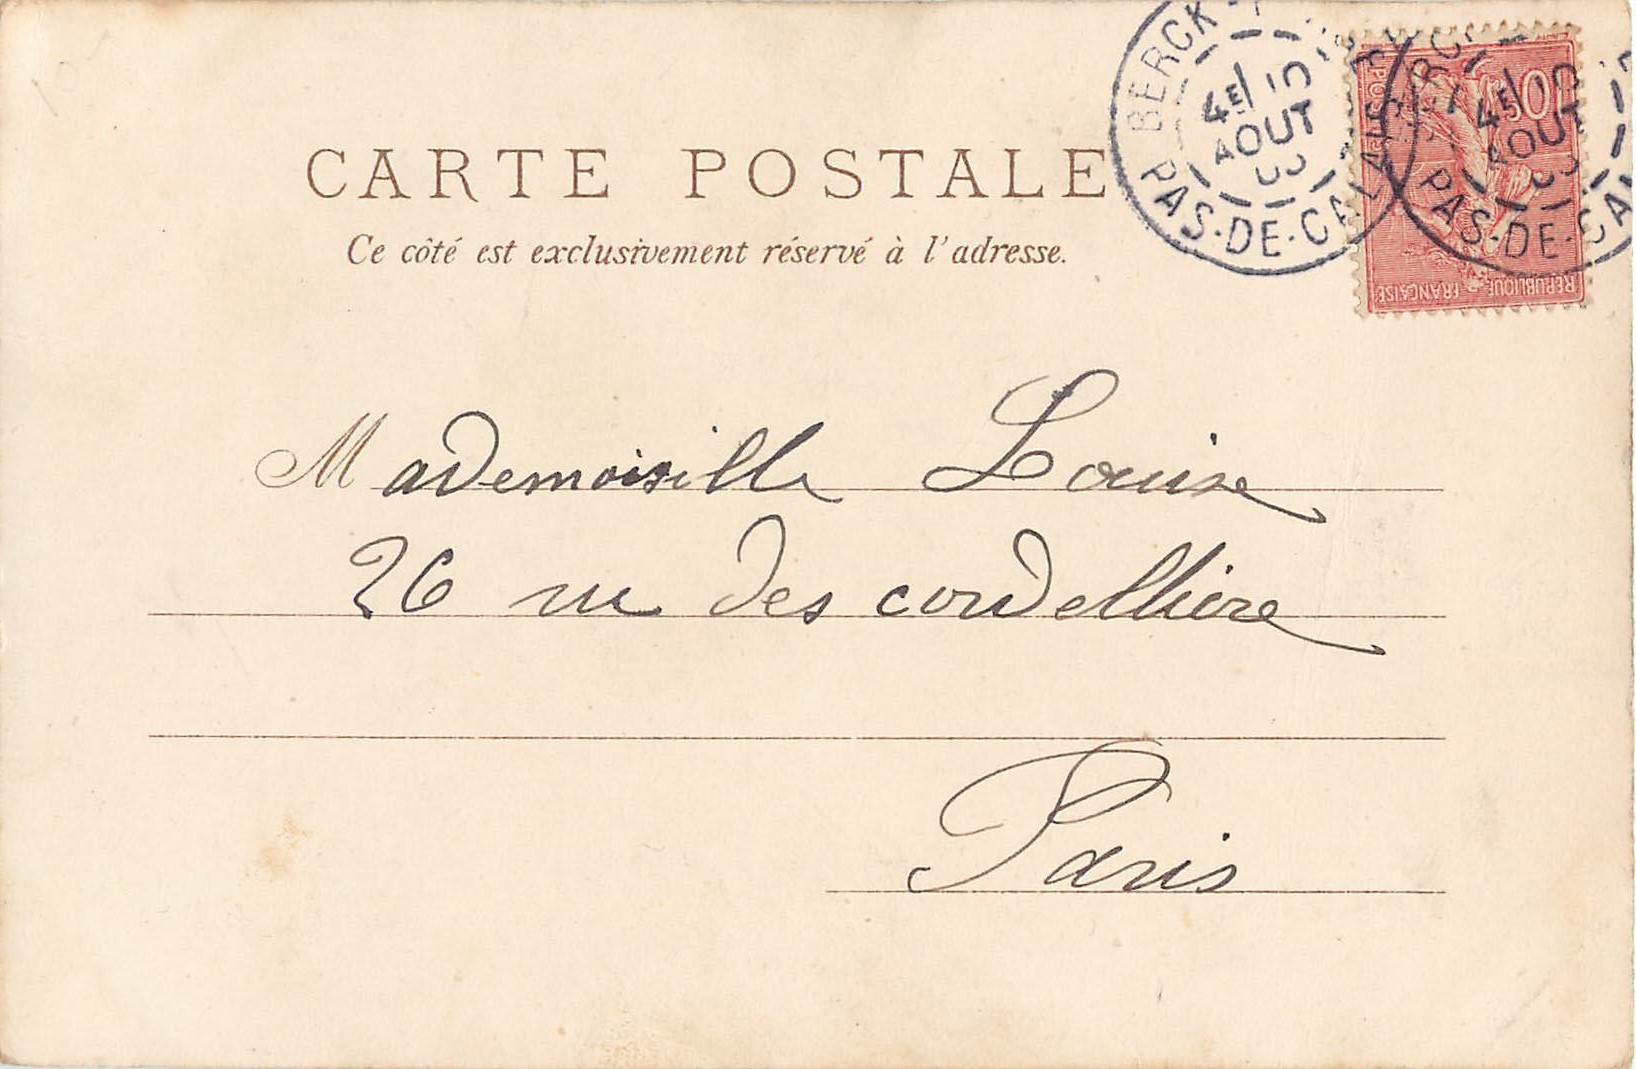 CARTE POSTALE
Ce côté est exclusivement réservé à l'adresse.
BERCK
4E/ 10
AOUT
PAS-DE-CALAIS
4E/ 10
AOUT
PAS-DE-CA
10
POSTES
REPUBLIQUE FRANÇAISE
Mademoiselle Louise
26 rue des cordellière
Paris